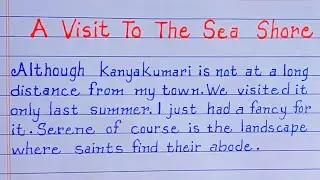 A Visit To The Sea Shore
Although Kanyakumari is not at a long
distance from my town. We visited it
only last summer. I just had a fancy for
it. Serene of course is the landscape
where saints find their abode.